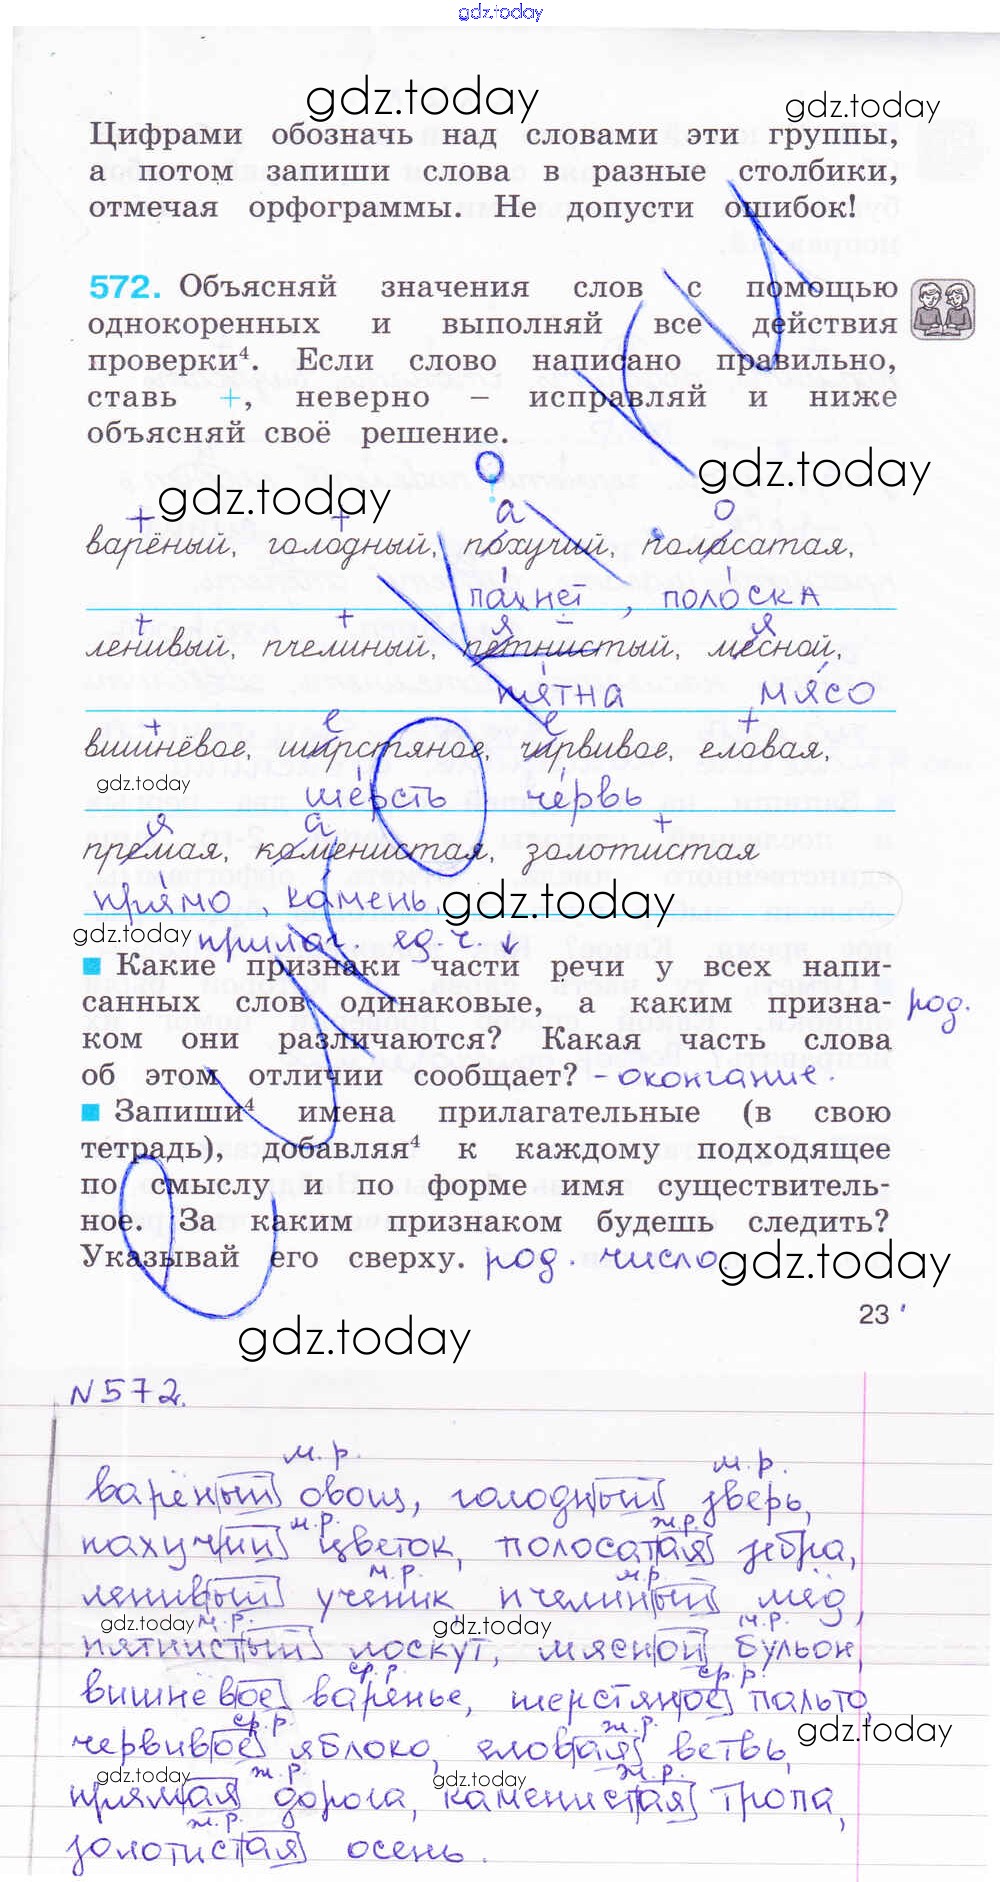 gdz.today
gdz.today
gdz.today
Цифрами обозначь над словами эти группы,
а потом запиши слова в разные столбики,
отмечая орфограммы. Не допусти ошибок!
572. Объясняй значения слов с помощью
однокоренных и выполняй все действия
проверки⁴. Если слово написано правильно,
ставь +, неверно – исправляй и ниже
объясняй своё решение.
gdz.today
gdz.today
+ + а о
варёный, голодный, похучий, поласатая,
пáхнет, полóска
+ + я я
ленивый, пчелиный, петнистый, месной,
пя́тна мя́со
+ е е +
вишнёвое, ширстяное, чирвивое, еловая,
gdz.today
gdz.today
ше́рсть че́рвь
я а +
премая, комен​истая, золотистая
пря́мо, ка́мень.
gdz.today
gdz.today
прилаг. ед. ч. ↓
Какие признаки части речи у всех напи-
санных слов одинаковые, а каким призна- род.
ком они различаются? Какая часть слова
об этом отличии сообщает? - окончание.
Запиши⁴ имена прилагательные (в свою
тетрадь), добавляя⁴ к каждому подходящее
по смыслу и по форме имя существитель-
ное. За каким признаком будешь следить?
Указывай его сверху. род. число
gdz.today
23
gdz.today
N572.
м.р. м.р.
варёный овощ, голодный зверь,
м.р. ж.р.
пахучий цветок, полосатая зебра,
м.р. м.р.
ленивый ученик пчелиный мёд,
gdz.today
gdz.today
м.р. м.р.
пятнистый лоскут, мясной бульон,
ср.р. ср.р.
вишнёвое варенье, шерстяное пальто,
ср.р. ж.р.
gdz.today
червивое яблоко, еловая ветвь,
gdz.today
gdz.today
ж.р. ж.р.
прямая дорога, каменистая тропа,
ж.р.
золотистая осень.